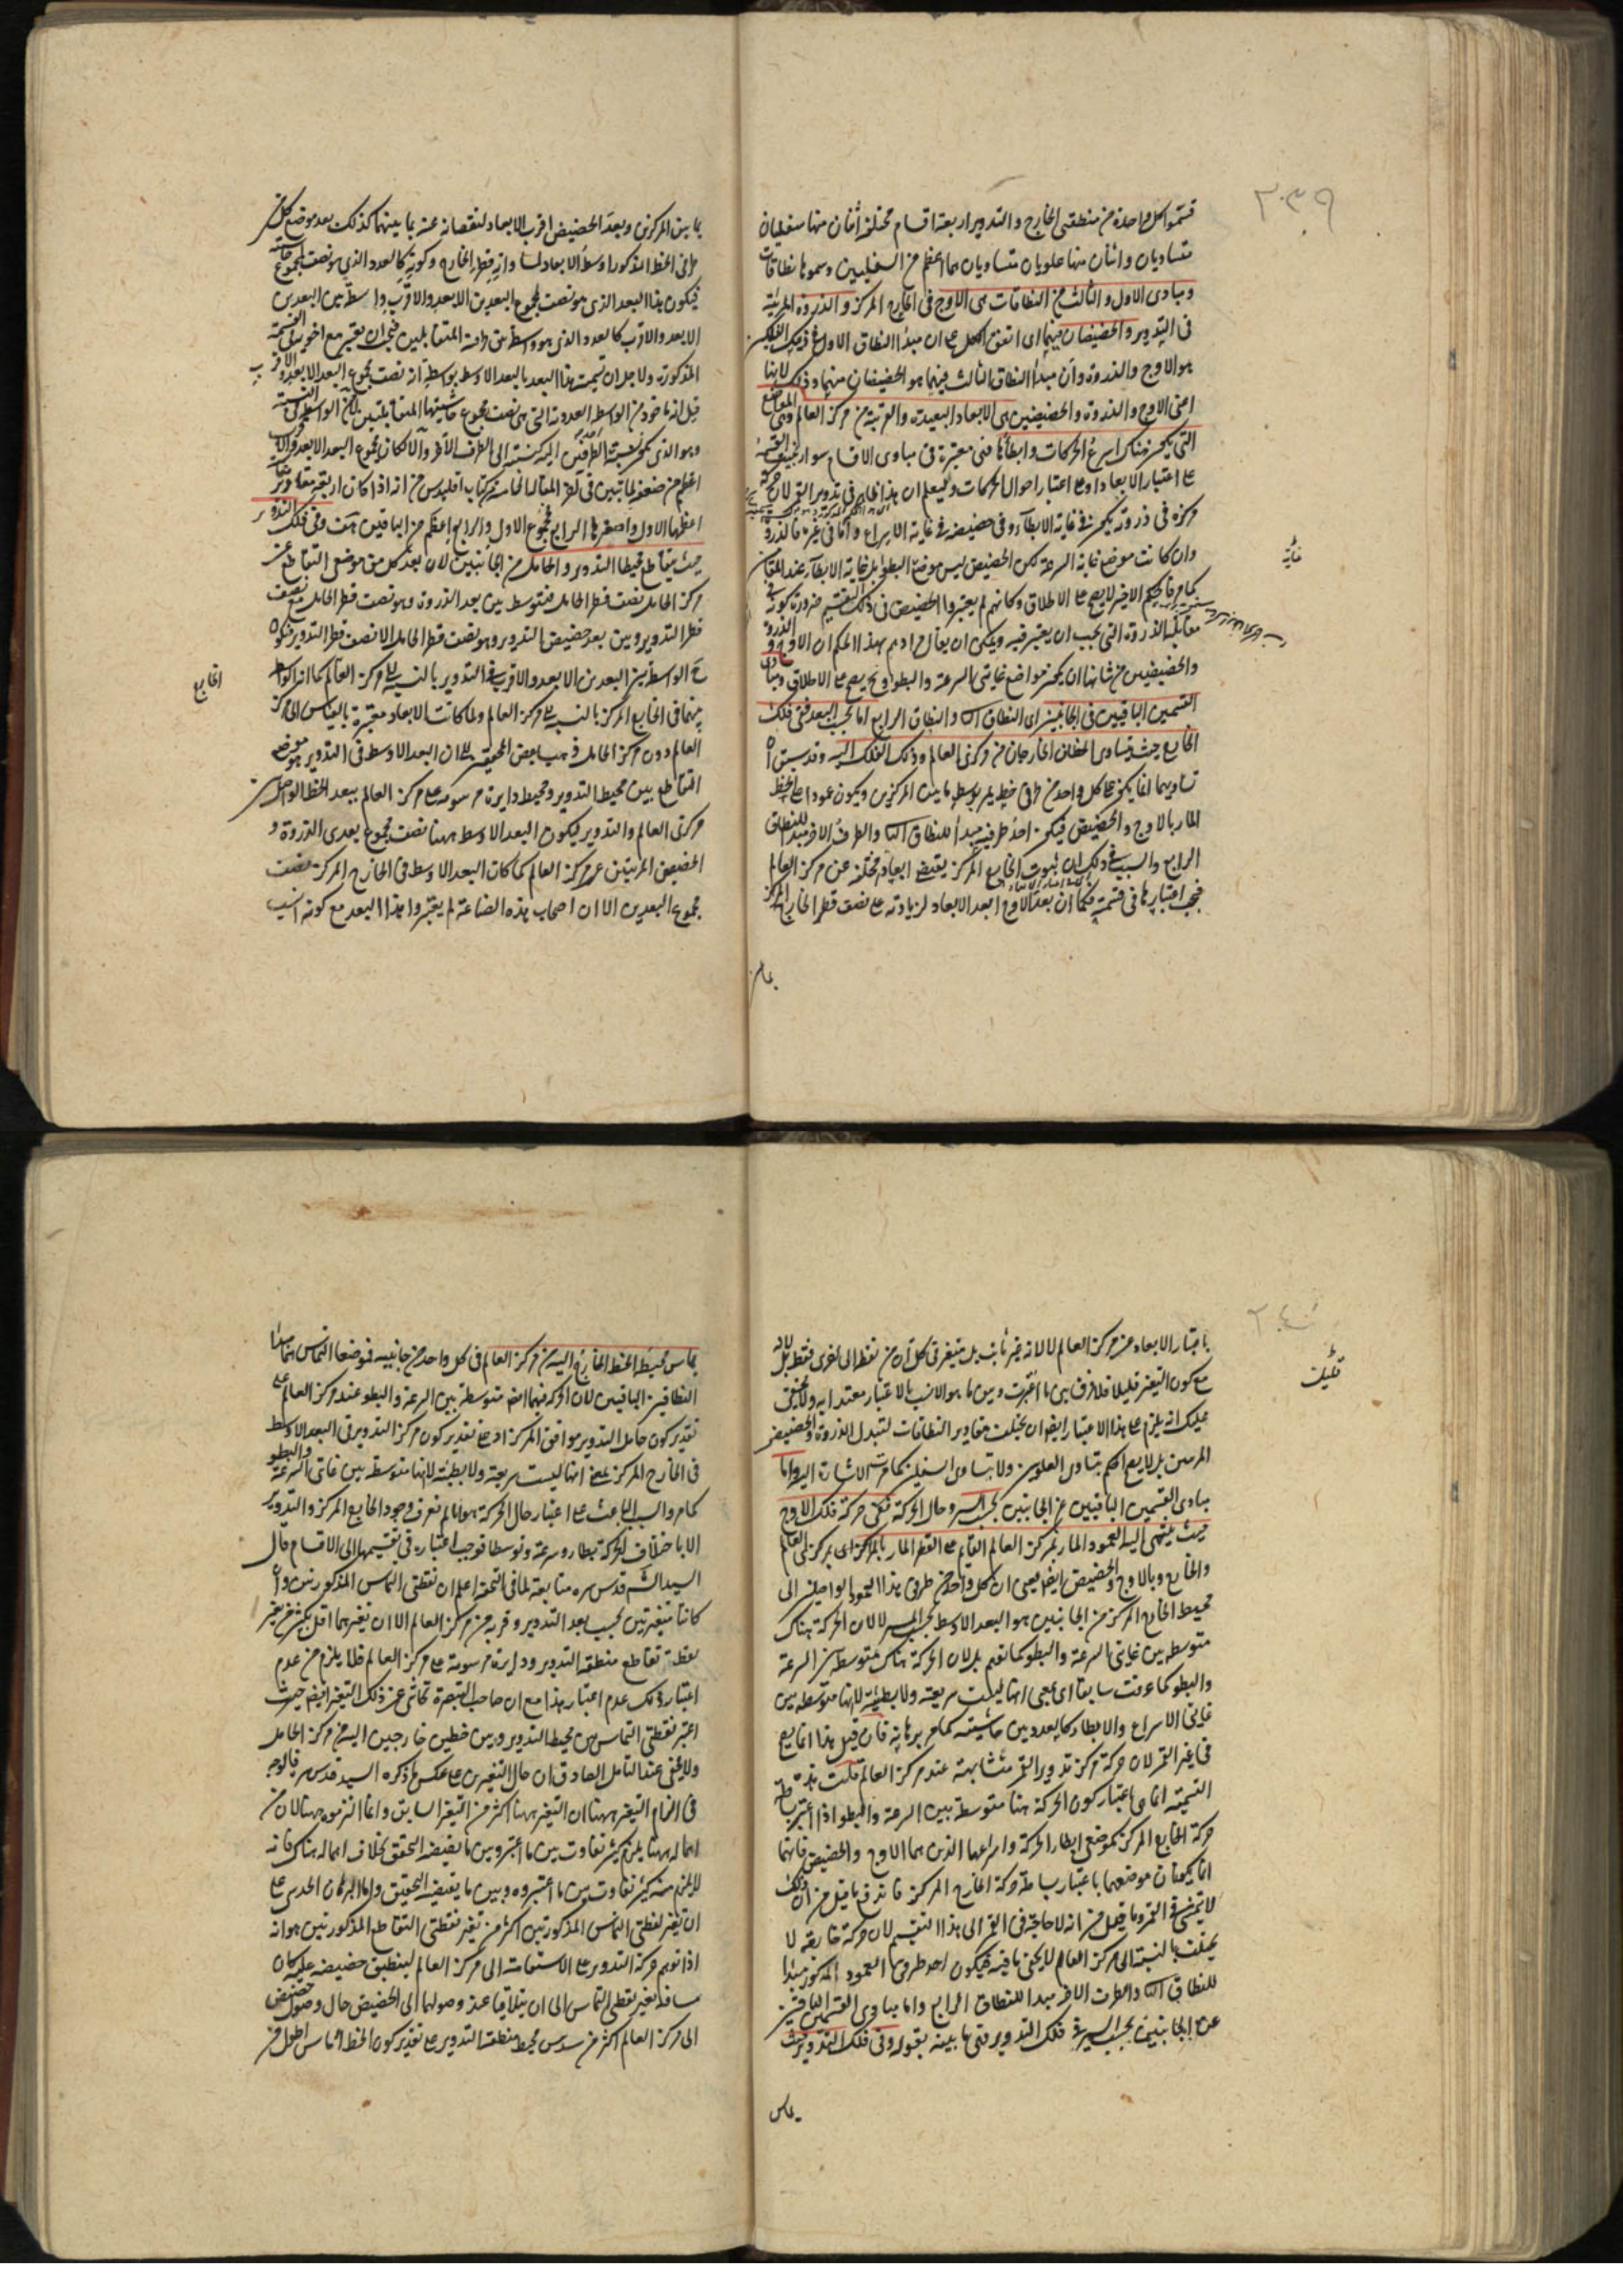 ٢٣٩
قسموا كل واحدة من منطقتى الخارج والتدوير اربعة اقسام مختلفة اثنان منها سفليان
متساويان واثنان منها علويان متساويان هما اعظم من السفليين وسموها نطاقات
ومبادى الاول والثالث من النطاقات هى الاوج فى الخارج المركز والذروة المرئية
فى التدوير والحضيضان فيهما اى اتفق الكل على ان مبدأ النطاق الاول فى ذينك الفلكين
هو الاوج والذروة وأن مبدأ النطاق الثالث فيهما هو الحضيضان منهما وذلك لانها
اعنى الاوج والذروة والحضيضين هى الابعاد البعيدة والقريبة من مركز العالم وهى المواضع
التى يكون هناك اسرع الحركات وابطأها فهى معتبرة فى مبادى الاقسام سواء
على اعتبار الابعاد او على اعتبار احوال الحركات وليعلم ان هذا ظاهر فى تدوير القمر لان حركة
مركزه فى ذروته يكون فى غاية الابطاء وفى حضيضه فى غاية الاسراع واما فى غيره فالذروة
وان كانت موضع غاية السرعة لكن الحضيض ليس موضع البطؤ بل غاية الابطاء عند المقام
كما مر فالحكم الاخير لا يصح على الاطلاق وكانهم لم يعتبروا الحضيض فى ذلك التقسيم ضرورة كونه فى
مقابلة الذروة التى يجب ان يعتبر فيه ويمكن ان يقال مرادهم بهذا الحكم ان الاوج والذروة
والحضيضين من شانها ان يكون مواضع غايتى السرعة والبطؤ وح يصح على الاطلاق ومبادى
القسمين الباقيين فى الجانبين اى النطاق الثانى والنطاق الرابع اما بحسب البعد ففى فلك
الخارج حيث يتساوى الخطان الخارجان من مركزى العالم وذلك الفلك اليه وقد سبق ان
تساويهما انما يكون على كل واحد من طرفى خط يمر بوسط ما بين المركزين ويكون عمودا على الخط
المار بالاوج والحضيض فيكون احد طرفيه مبدأ للنطاق الثانى والطرف الاخر مبدأ للنطاق
الرابع والسبب فى ذلك ان ثبوت الخارج المركز يقتضى ابعادا مختلفة عن مركز العالم
فيجب اعتبارها فى قسمته فكما ان بعد الاوج ابعد الابعاد لزيادته على نصف قطر الخارج المركز
غاية
بما
بما بين المركزين وبعد الحضيض اقرب الابعاد لنقصانه عنه بما بينهما كذلك بعد موضع كل من
طرفى الخط المذكور اوسط الابعاد لمساواته نصف قطر الخارج وكونه كالعدد الذى هو نصف مجموع حاشيتيه
فيكون هذا البعد الذى هو نصف مجموع البعدين الابعد والاقرب واسطة بين البعدين
الابعد والاقرب كالعدد الذى هو واسطة بين حاشيتيه المتقابلين فيجب ان يعتبر مع اخويه فى القسمة
المذكورة ولاجل ان تسمية هذا البعد بالبعد الاوسط بواسطة انه نصف مجموع البعد الابعد والاقرب
قيل انه ماخوذ من الواسطة العددية التى هى نصف مجموع حاشيتيها المتقابلتين لا من الواسطة فى النسبة
وهو الذى يكون نسبة احد الطرفين اليه كنسبته الى الطرف الاخر والا لكان مجموع البعد الابعد والاقرب
اعظم من ضعفه لما تبين فى اخر المقالة الخامسة من كتاب اقليدس من انه اذا كان اربعة مقادير متناسبة
اعظمها الاول واصغرها الرابع فمجموع الاول والرابع اعظم من الباقيين هذا وفى فلك التدوير
حيث يتقاطع محيطا التدوير والحامل من الجانبين لان بعد كل من موضعى التقاطع عن
مركز الحامل نصف قطر الحامل فيتوسط بين بعد الذروة وهو نصف قطر الحامل مع نصف
قطر التدوير وبين بعد حضيض التدوير وهو نصف قطر الحامل الا نصف قطر التدوير فيكون
ح الواسطة بين البعدين الابعد والاقرب فى التدوير بالنسبة الى مركز العالم كما انه الواسطة
بينهما فى الخارج المركز بالنسبة الى مركز العالم ولما كانت الابعاد معتبرة بالقياس الى مركز
العالم دون مركز الحامل ذهب بعض المحققين الى ان البعد الاوسط فى التدوير هو موضع
التقاطع بين محيط التدوير ومحيط دايرة مرسومة على مركز العالم ببعد الخط الواصل بين
مركزى العالم والتدوير فيكون البعد الاوسط ههنا نصف مجموع بعدى الذروة و
الحضيض المرئيتين عن مركز العالم كما كان البعد الاوسط فى الخارج المركز نصف
مجموع البعدين الا ان اصحاب هذه الصناعة لم يعتبروا هذا البعد مع كونه انسب
الخارج
٢٤٠
باعتبار الابعاد عن مركز العالم لا لانه غير ثابت بل متغير فى كل آن من نقطة الى اخرى فقط بل لانه
مع كون التغير قليلا فلا فرق بين ما اعتبرت وبين ما هو الانسب بالاعتبار معتدا به ولا يخفى
عليك انه يلزم على هذا الاعتبار ايضا ان يختلف مقادير النطاقات لتبدل الذروة والحضيض
المرئيين بل لا يصح الحكم بتساوى العلويين ولا بتساوى السفليين كما مرت الاشارة اليه واما
مبادى القسمين الباقيين عن الجانبين بحسب المسير وحال الحركة ففى حركة فلك الاوج
حيث ينتهى اليه العمود المار بمركز العالم القايم على القطر المار بالمركزين اى بمركزى العالم
والخارج وبالاوج والحضيض ايضا يعنى ان كل واحد من طرفى هذا العمود الواصلين الى
محيط الخارج المركز من الجانبين هو البعد الاوسط بحسب المسير لا لان الحركة هناك
متوسطة بين غايتى السرعة والبطؤ كما توهم بل لان الحركة هناك متوسطة بين السرعة
والبطؤ كما عرفت سابقا اى بمعنى انها ليست سريعة ولا بطيئة لانها متوسطة بين
غايتى الاسراع والابطاء كالعدد بين حاشيتيه كما مر برهانه فان قيل هذا انما يصح
فى غير القمر لان حركة مركز تدوير القمر متشابهة عند مركز العالم قلت هذه
القسمة انما هى باعتبار كون الحركة هنا متوسطة بين السرعة والبطؤ اذا اعتبر بساطة
حركة الخارج المركز كموضعى ابطاء الحركة واسراعها الذين هما الاوج والحضيض فانهما
انما يكونان موضعهما باعتبار بساطة حركة الخارج المركز فاندفع ما قيل من ان ذلك
لا يتمشى فى القمر وما قيل من انه لا حاجة فى القمر الى هذا التقسيم لان حركة خارجه لا
يختلف بالنسبة الى مركز العالم لا يخفى ما فيه فيكون احد طرفى العمود المذكور مبتدأ
للنطاق الثانى والطرف الاخر مبدأ للنطاق الرابع واما مبادى القسمين الباقيين
عن الجانبين بحسب المسير فى فلك التدوير فهى ما بينه بقوله وفى فلك التدوير حيث
يماس
يماس محيطه الخط الخارج اليه من مركز العالم فى كل واحد من جانبيه فموضعا التماس هما مبدئا
النطاقين الباقيين لان الحركة فيهما ايضا متوسطة بين السرعة والبطؤ عند مركز العالم على
تقدير كون حامل التدوير موافق المركز او على تقدير كون مركز التدوير فى البعد الاوسط
فى الخارج المركز بمعنى انها ليست سريعة ولا بطيئة لانها متوسطة بين غايتى السرعة والبطؤ
كما مر والسبب الباعث على اعتبار حال الحركة هو انا لم نعرف وجود الخارج المركز والتدوير
الا باختلاف الحركة بطاء وسرعة وتوسطا فوجب اعتباره فى تقسيمها الى الاقسام قال
السيد الشريف قدس سره متابعة لما فى التحفة اعلم ان نقطتى التماس المذكورتين وان
كانتا متغيرتين بحسب بعد التدوير وقربه من مركز العالم الا ان تغيرهما اقل بكثير من تغير
نقطة تقاطع منطقة التدوير ودايرة مرسومة على مركز العالم فلا يلزم من عدم
اعتبار ذلك عدم اعتبار هذا مع ان صاحب التبصرة تحاشى عن ذلك التغير ايضا حيث
اعتبر نقطتى التماس بين محيط التدوير وبين خطين خارجين اليه من مركز الحامل
ولا يخفى عند التامل الصادق ان حال التغيرين على عكس ما ذكره السيد قدس سره فالوجه
فى التزام التغير ههنا ان التغير ههنا اكثر من التغير السابق وانما التزموه ههنا لان من
اهماله ههنا يلزم كثير تفاوت بين ما اعتبر وبين ما يقتضيه التحقيق بخلاف اهماله هناك فانه
لا يلزم منه كثير تفاوت بين ما اعتبروه وبين ما يقتضيه التحقيق واما البرهان الحدسى على
ان تغير نقطتى التماس المذكورتين اكثر من تغير نقطتى التقاطع المذكورتين هو انه
اذا توهم حركة التدوير على الاستقامة الى مركز العالم لينطبق حضيضه عليه كان
مسافة تغير نقطتى التماس الى ان يتلاقيا عند وصولهما الى الحضيض حال وصول حضيضه
الى مركز العالم اكثر من سدس محيط منطقة التدوير على تقدير كون الخط المماس اطول من